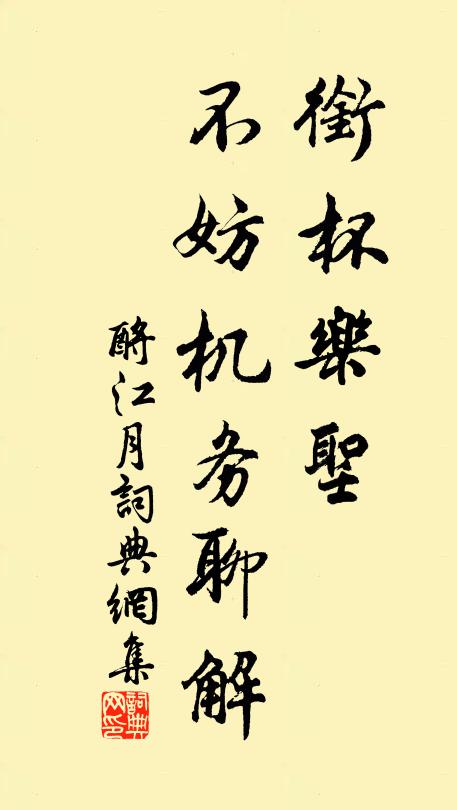 銜杯樂聖
不妨机务聊解
酹江月詞典網集
詞典网印